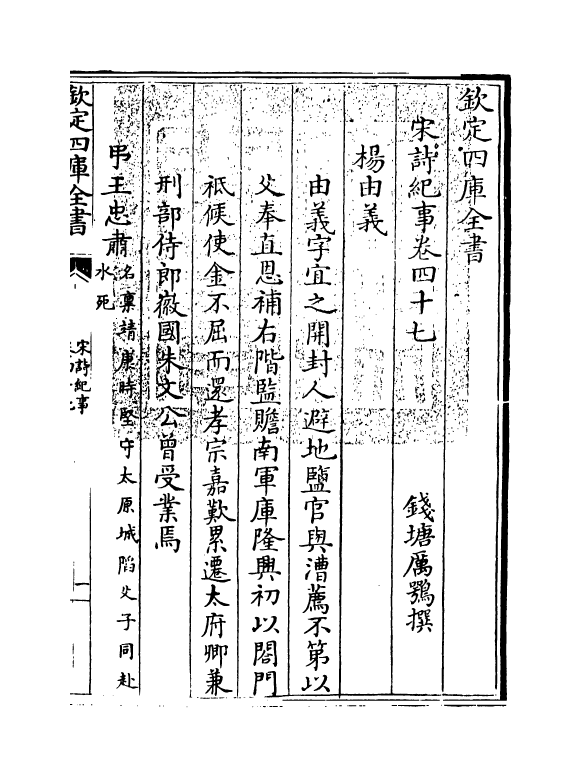 欽定四庫全書
宋詩紀事卷四十七
錢塘厲鶚撰
楊由義
由義字宜之開封人避地鹽官與漕薦不第以
父奉直恩補右階監贍南軍庫隆興初以閤門
祗候使金不屈而還孝宗嘉歎累遷太府卿兼
刑部侍郎徽國朱文公曾受業焉
弔王忠肅名稟靖康時堅守太原城䧟父子同赴
水死
欽定四庫全書
宋詩紀事
一